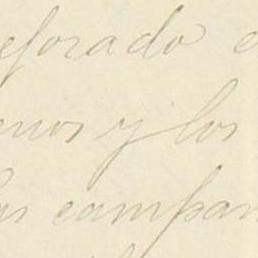 eforado e
enos y los
las campan